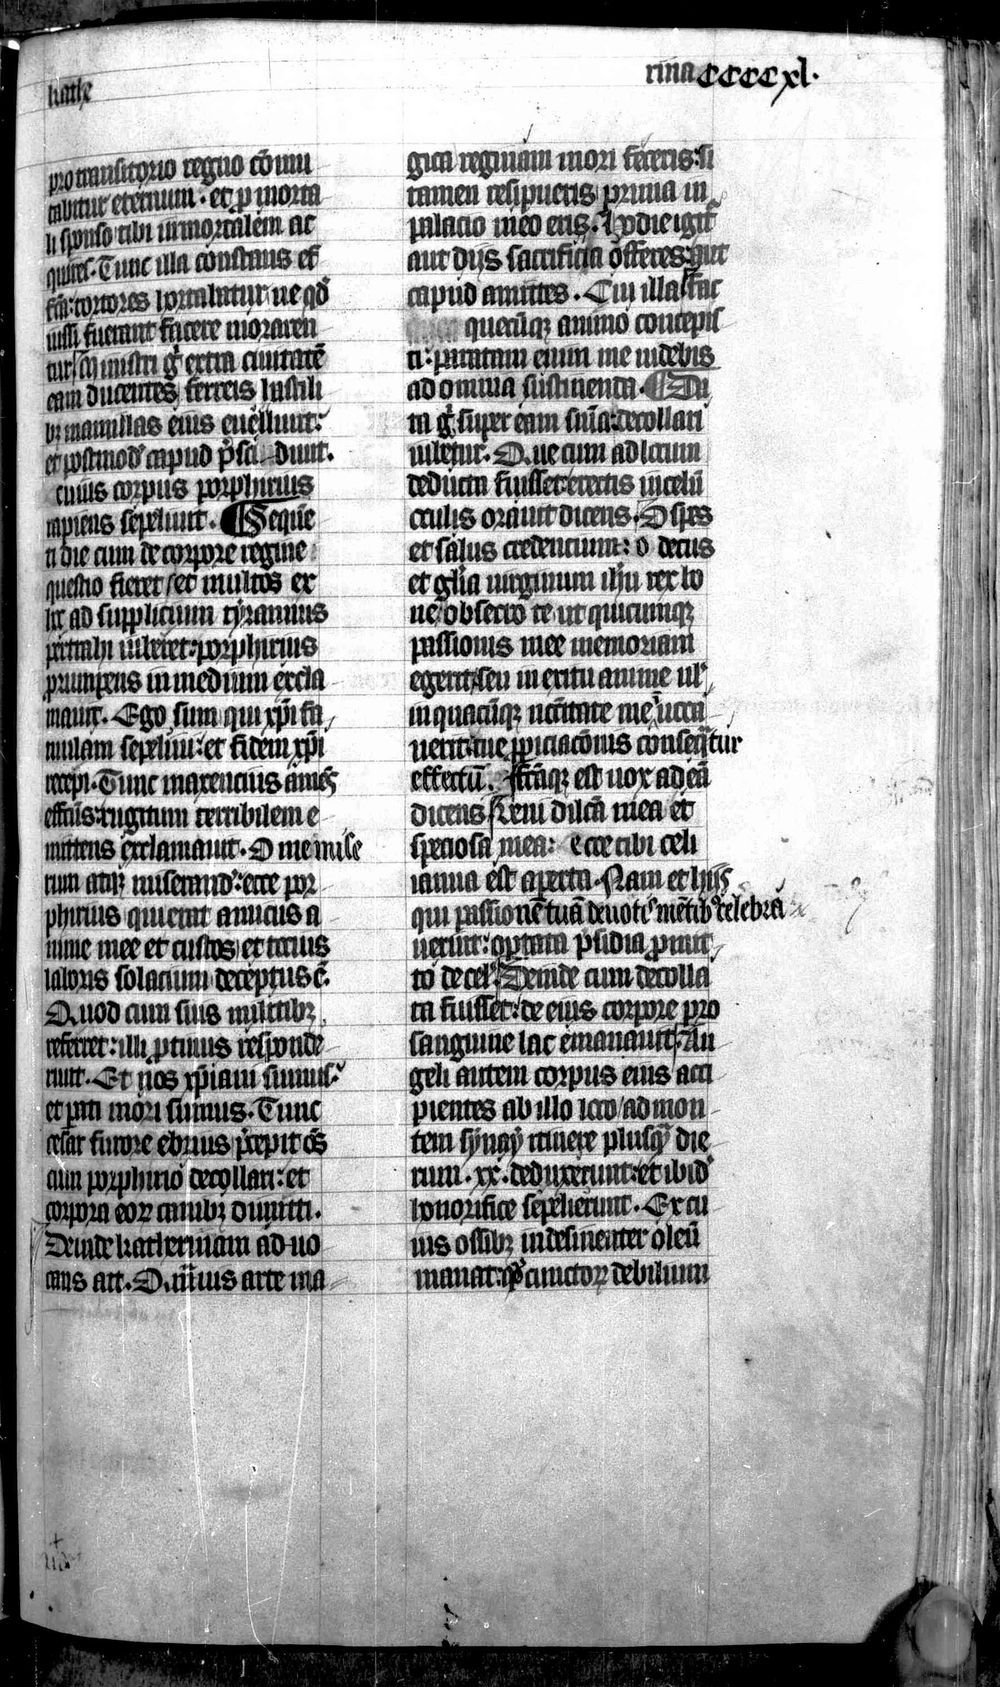 kathe
rina CCCCxl.
pro transitorio regno cōmu
tabitur eternum. et p morta
li sponso tibi inmortalem ac
quires. Tunc illa constans ef
fc̄a: tortores hortabatur ue qd̄
iussi fuerant facere moraren
tur ministri g̊ extra ciuitatē
eam ducentes, ferreis hastili
bꝫ mamillas eius euellunt:
et postmod̄ capud p̄sci-dunt.
cuius corpus porphirius
rapiens sepeliuit. ¶ Seque
ti die cum de corpore regine
questio fieret, et multos ex
hoc ad supplicium tyrannus
pertrahi iuberet: porphirius
prumpens in medium excla
mauit. Ego sum qui xp̄i fa
mulam sepeliui: et fidem xp̄i
recepi. Tunc maxencius amēs
effc̄us: rugitum terribilem e
mittens exclamauit. O me mise
rum atqꝫ miserand: ecce por
phirius qui erat amicus a
nime mee et custos et tocius
laboris solacium deceptus ē.
Quod cum suis militibꝫ
referret: illi ꝓtinus responde
runt. Et nos xp̄iani sumus:
et pati mori sumus. Tunc
cesar furore ebrius p̄cepit oēs
cum porphirio decollari: et
corpora eoꝝ canibꝫ dimitti.
Deinde katherinam ad uo
cans ait. Quīuis arte ma
gica reginam mori feceris: si
tamen resipueris prima in
palacio meo eris. Hodie igit̄
aut dijs sacrificia offeres: aut
capud amittes. Cui illa fac
quecūqꝫ animo concepis
ti: paratam enim me uidebis
ad omnia sustinenda. ¶ Da
ta g̊ super eam snīa: decollari
iubetur. Que cum ad locum
deducta fuisset: erectis in celū
oculis orauit dicens. O spes
et salus credencium: o decus
et glīa uirginum ihū rex bo
ne, obsecro te ut quicumqꝫ
passionis mee memoriam
egerit, seu in exitu anime ul̄
in quacūqꝫ nc̄citate me īuoca
uerit: tue ppiciacōnis conseq̄tur
effectū. Fc̄aqꝫ est uox ad eā
dicens, Ueni dilc̄a mea et
speciosa mea: ecce tibi celi
ianua est aperta. Nam et hijs
qui passionē tuā deuotis mētibꝫ celebra
uerint: optata p̄sidia ꝓmit
to de cel. Deinde cum decolla
ta fuisset: de eius corpore pro
sanguine lac emanauit. An
geli autem corpus eius acci
pientes ab illo loco, ad mon
tem synay itinere plusqȝ die
rum .xx. deduxerunt: et ibid̄
honorifice sepelierunt. Ex cu
ius ossibꝫ indesinenter oleū
manat: qd̄ cunctoꝝ debilium